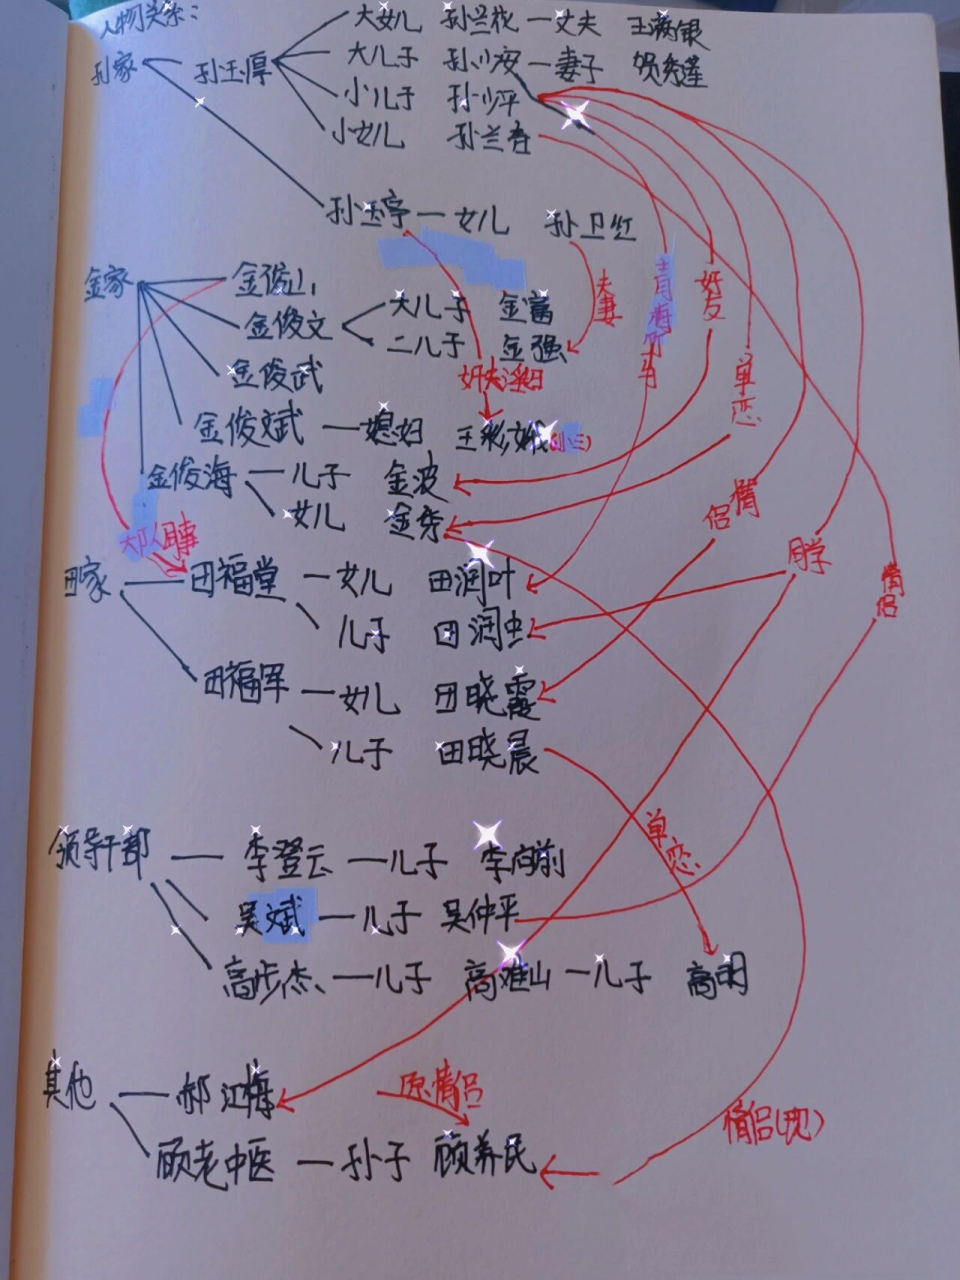 人物关系:
大女儿 孙兰花 — 丈夫 王满银
孙家 孙玉厚 大儿子 孙少安 — 妻子 贺秀莲
小儿子 孙少平
小女儿 孙兰香
孙玉亭 — 女儿 孙卫红
夫妻
青梅竹马
好友
单恋
金家 金俊山
金俊文 大儿子 金富
二儿子 金强
金俊武 奸夫淫妇
金俊斌 — 媳妇 王彩娥(小三)
金俊海 — 儿子 金波
女儿 金秀
情侣
同学
情侣
大队同事
田家 — 田福堂 — 女儿 田润叶
儿子 田润生
田福军 — 女儿 田晓霞
儿子 田晓晨
单恋
领导干部 — 李登云 — 儿子 李向前
吴斌 — 儿子 吴仲平
高步杰 — 儿子 高难山 — 儿子 高朗
其他 — 郝江梅 原情侣
顾老中医 — 孙子 顾养民
情侣(现)